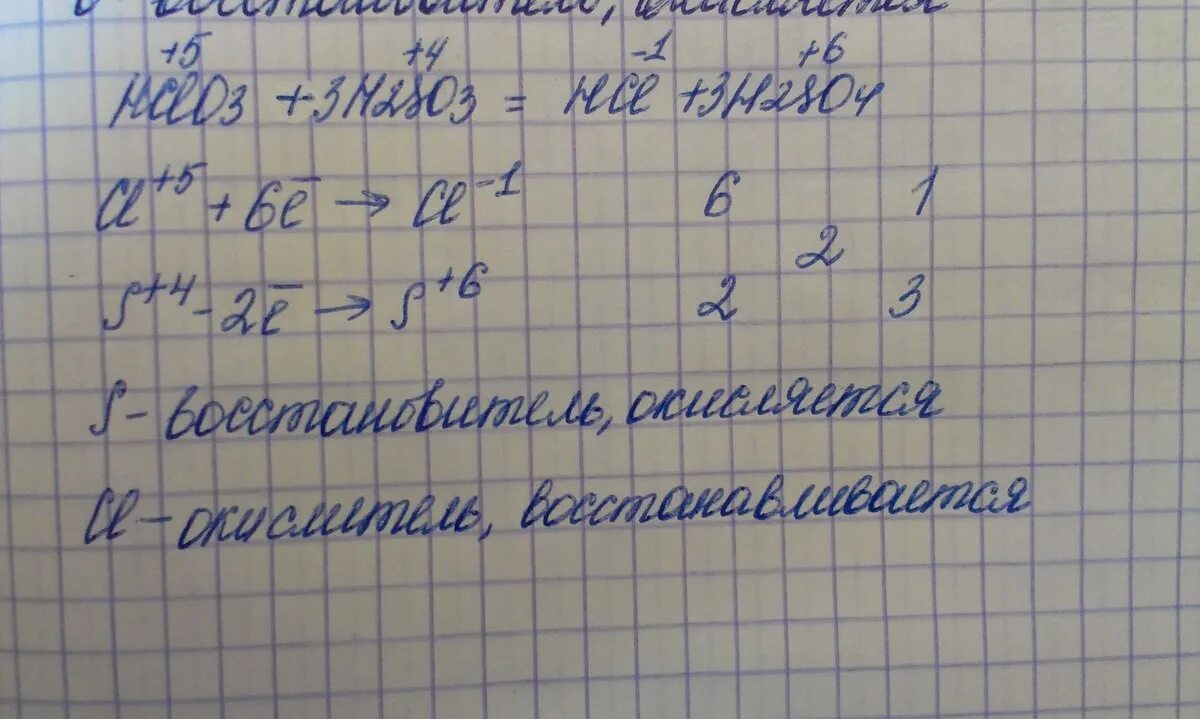 восстановитель, окисляется
+5 +4 -1 +6
HClO3 + 3H2SO3 = HCl + 3H2SO4
Cl+5 + 6e̅ → Cl-1 6 1
2
S+4 - 2e̅ → S+6 2 3
S - восстановитель, окисляется
Cl - окислитель, восстанавливается